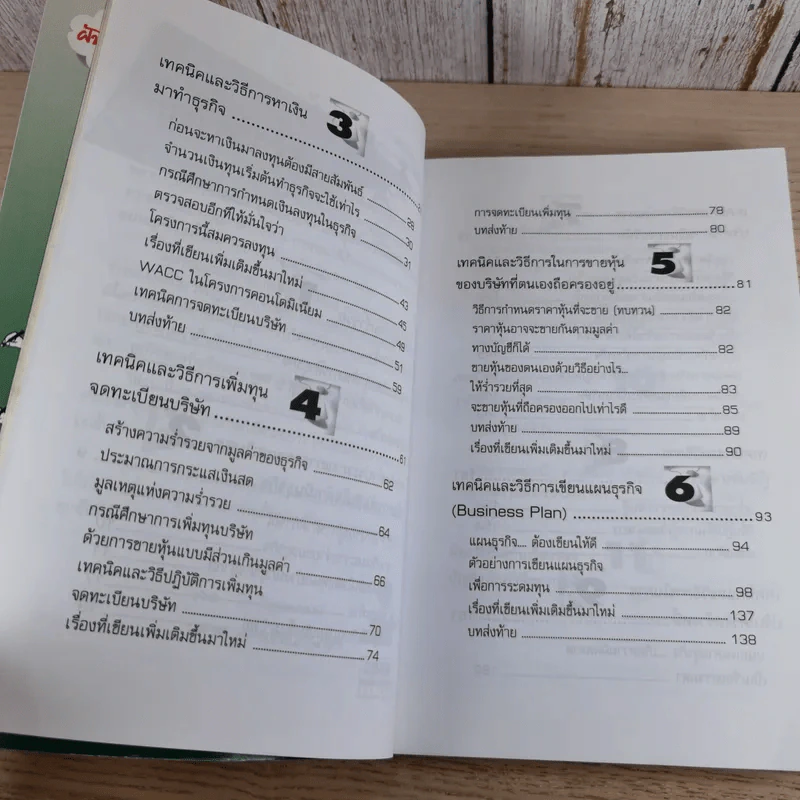 เทคนิคและวิธีการหาเงิน
มาทำธุรกิจ 3
ก่อนจะหาเงินมาลงทุนต้องมีสายสัมพันธ์ 29
จำนวนเงินทุนเริ่มต้นทำธุรกิจจะใช้เท่าไร 30
กรณีศึกษาการกำหนดเงินลงทุนในธุรกิจ 31
ตรวจสอบอีกทีให้มั่นใจว่า
โครงการนี้สมควรลงทุน 43
เรื่องที่เขียนเพิ่มเติมขึ้นมาใหม่ 45
WACC ในโครงการคอนโดมิเนียม 49
เทคนิคการจดทะเบียนบริษัท 51
บทส่งท้าย 59
เทคนิคและวิธีการเพิ่มทุน
จดทะเบียนบริษัท 4 61
สร้างความร่ำรวยจากมูลค่าของธุรกิจ 62
ประมาณการกระแสเงินสด
มูลเหตุแห่งความร่ำรวย 64
กรณีศึกษาการเพิ่มทุนบริษัท
ด้วยการขายหุ้นแบบมีส่วนเกินมูลค่า 66
เทคนิคและวิธีปฏิบัติการเพิ่มทุน
จดทะเบียนบริษัท 70
เรื่องที่เขียนเพิ่มเติมขึ้นมาใหม่ 74
การจดทะเบียนเพิ่มทุน 78
บทส่งท้าย 80
เทคนิคและวิธีการในการขายหุ้น 5
ของบริษัทที่ตนเองถือครองอยู่ 81
วิธีการกำหนดราคาหุ้นที่จะขาย (ทบทวน) 82
ราคาหุ้นอาจจะขายกันตามมูลค่า
ทางบัญชีก็ได้ 82
ขายหุ้นของตนเองด้วยวิธีอย่างไร...
ให้ร่ำรวยที่สุด 83
จะขายหุ้นที่ถือครองออกไปเท่าไรดี 85
บทส่งท้าย 89
เรื่องที่เขียนเพิ่มเติมขึ้นมาใหม่ 90
เทคนิคและวิธีการเขียนแผนธุรกิจ 6
(Business Plan) 93
แผนธุรกิจ... ต้องเขียนให้ดี 94
ตัวอย่างการเขียนแผนธุรกิจ
เพื่อการระดมทุน 98
เรื่องที่เขียนเพิ่มเติมขึ้นมาใหม่ 137
บทส่งท้าย 138